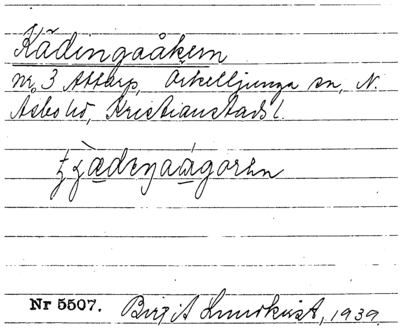 Kädingaåkern
nr 3 Attarp, Örkelljunga sn, N.
Åsbo hd, Kristianstads l.
Nr 5507. Birgit Lundkvist, 1939.